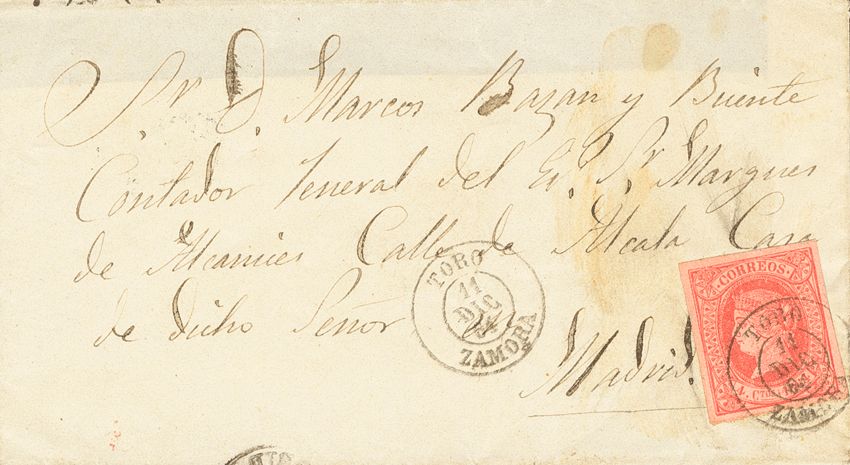 Sr. D. Marcos Bazan y Buente
Contador General del Ex. Sr. Marques
de Alcañices Calle de Alcala Casa
de dicho Señor
Madrid.
TORO
11
DIC
64
ZAMORA
CORREOS
4. CTOS
TORO
11
DIC
64
ZAMORA